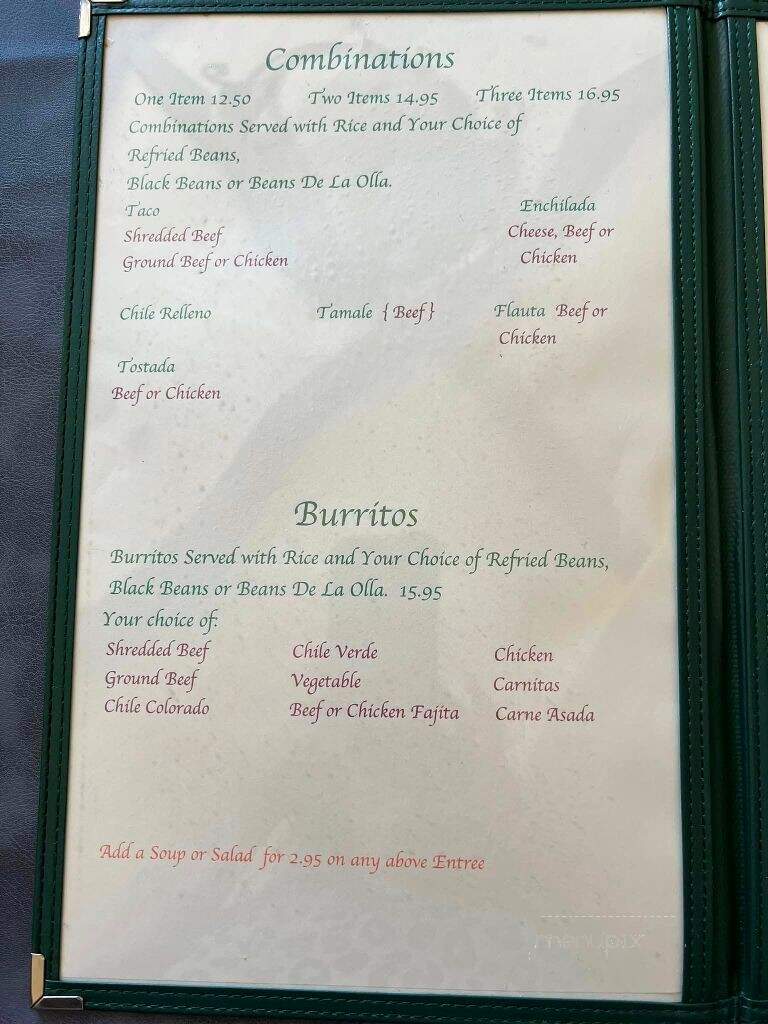 Combinations
One Item 12.50 Two Items 14.95 Three Items 16.95
Combinations Served with Rice and Your Choice of
Refried Beans,
Black Beans or Beans De La Olla.
Taco Enchilada
Shredded Beef Cheese, Beef or
Ground Beef or Chicken Chicken
Chile Relleno Tamale { Beef } Flauta Beef or
Chicken
Tostada
Beef or Chicken
Burritos
Burritos Served with Rice and Your Choice of Refried Beans,
Black Beans or Beans De La Olla. 15.95
Your choice of:
Shredded Beef Chile Verde Chicken
Ground Beef Vegetable Carnitas
Chile Colorado Beef or Chicken Fajita Carne Asada
Add a Soup or Salad for 2.95 on any above Entree
menupix